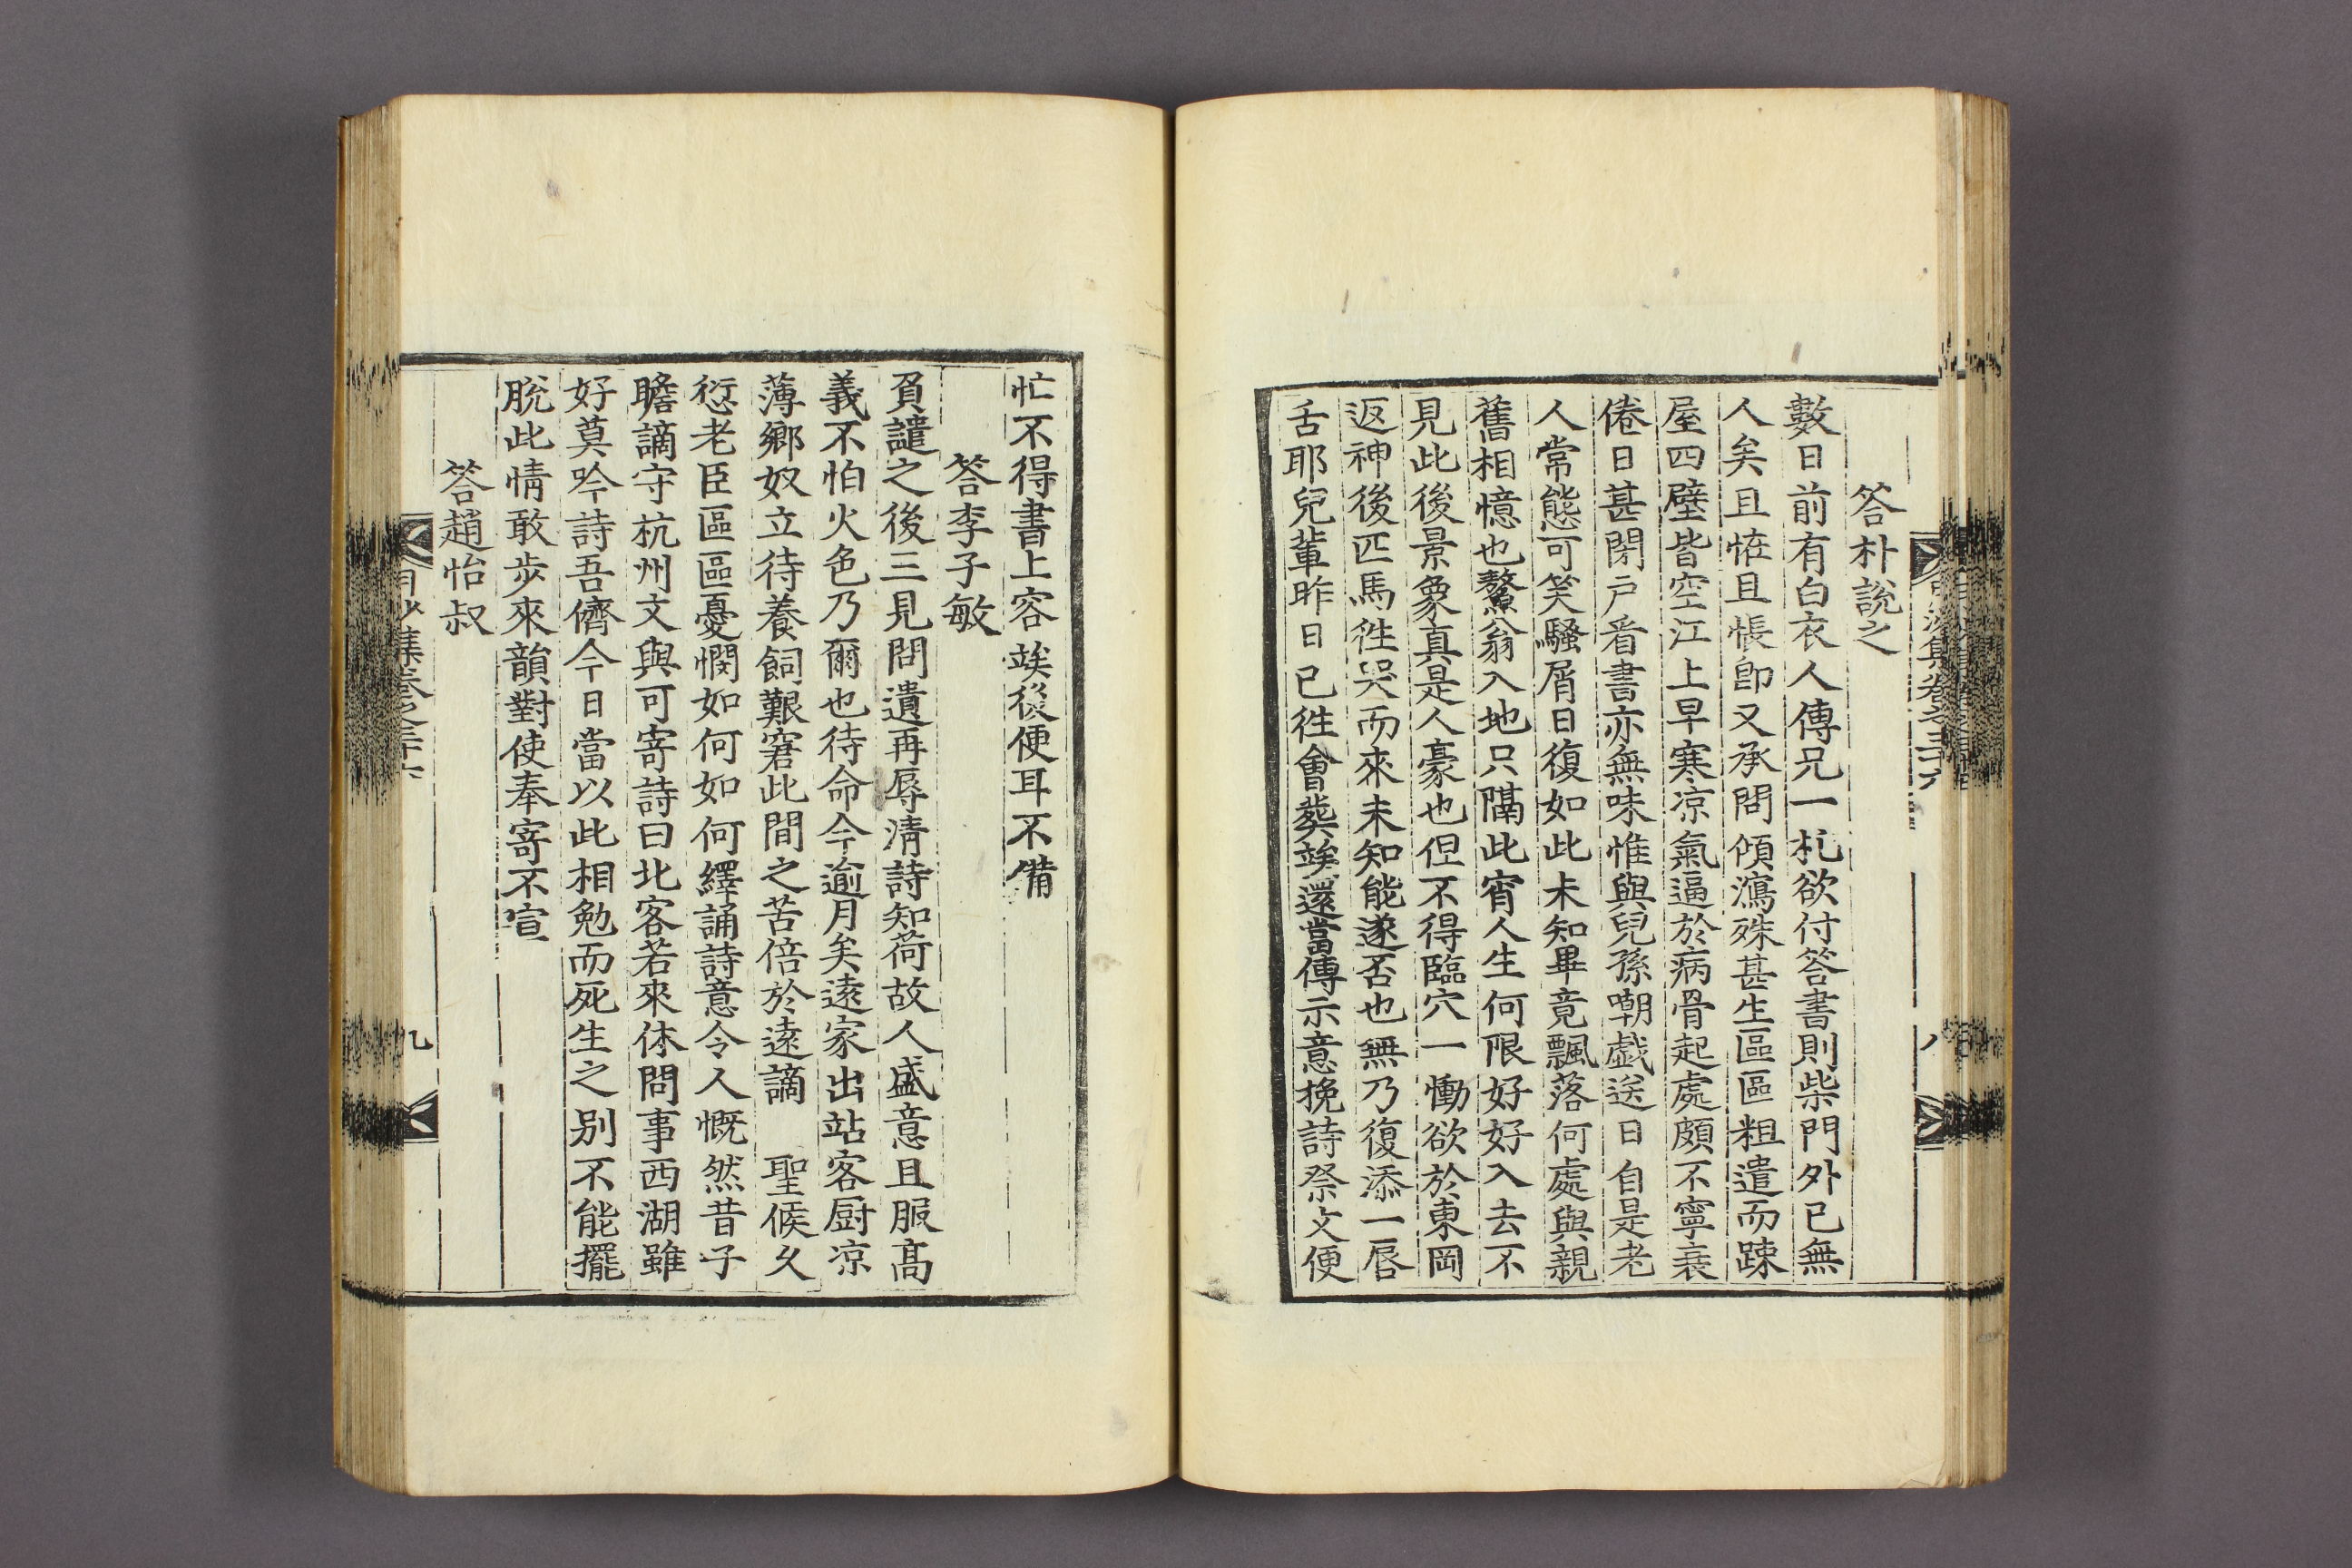 答朴說之
數日前有白衣人傳兄一札欲付答書則柴門外已無
人矣且恠且悵卽又承問傾瀉殊甚生區區粗遣而踈
屋四壁皆空江上早寒凉氣逼於病骨起處頗不寧衰
倦日甚閉戶看書亦無味惟與兒孫嘲戱送日自是老
人常態可笑騷屑日復如此未知畢竟飄落何處與親
舊相憶也鰲翁入地只隔此宵人生何限好好入去不
見此後景象真是人豪也但不得臨穴一慟欲於東岡
返神後匹馬徃哭而來未知能遂否也無乃復添一唇
舌耶兒輩昨日已徃會葬竢還當傳示意挽詩祭文便
忙不得書上容竢後便耳不備
答李子敏
負譴之後三見問遺再辱淸詩知荷故人盛意且服高
義不怕火色乃爾也待命今逾月矣遠家出站客厨凉
薄鄕奴立待養飼艱窘此間之苦倍於遠謫　聖候久
愆老臣區區憂憫如何如何繹誦詩意令人慨然昔子
瞻謫守杭州文與可寄詩曰北客若來休問事西湖雖
好莫吟詩吾儕今日當以此相勉而死生之别不能擺
脫此情敢步來韻對使奉寄不宣
答趙怡叔
九